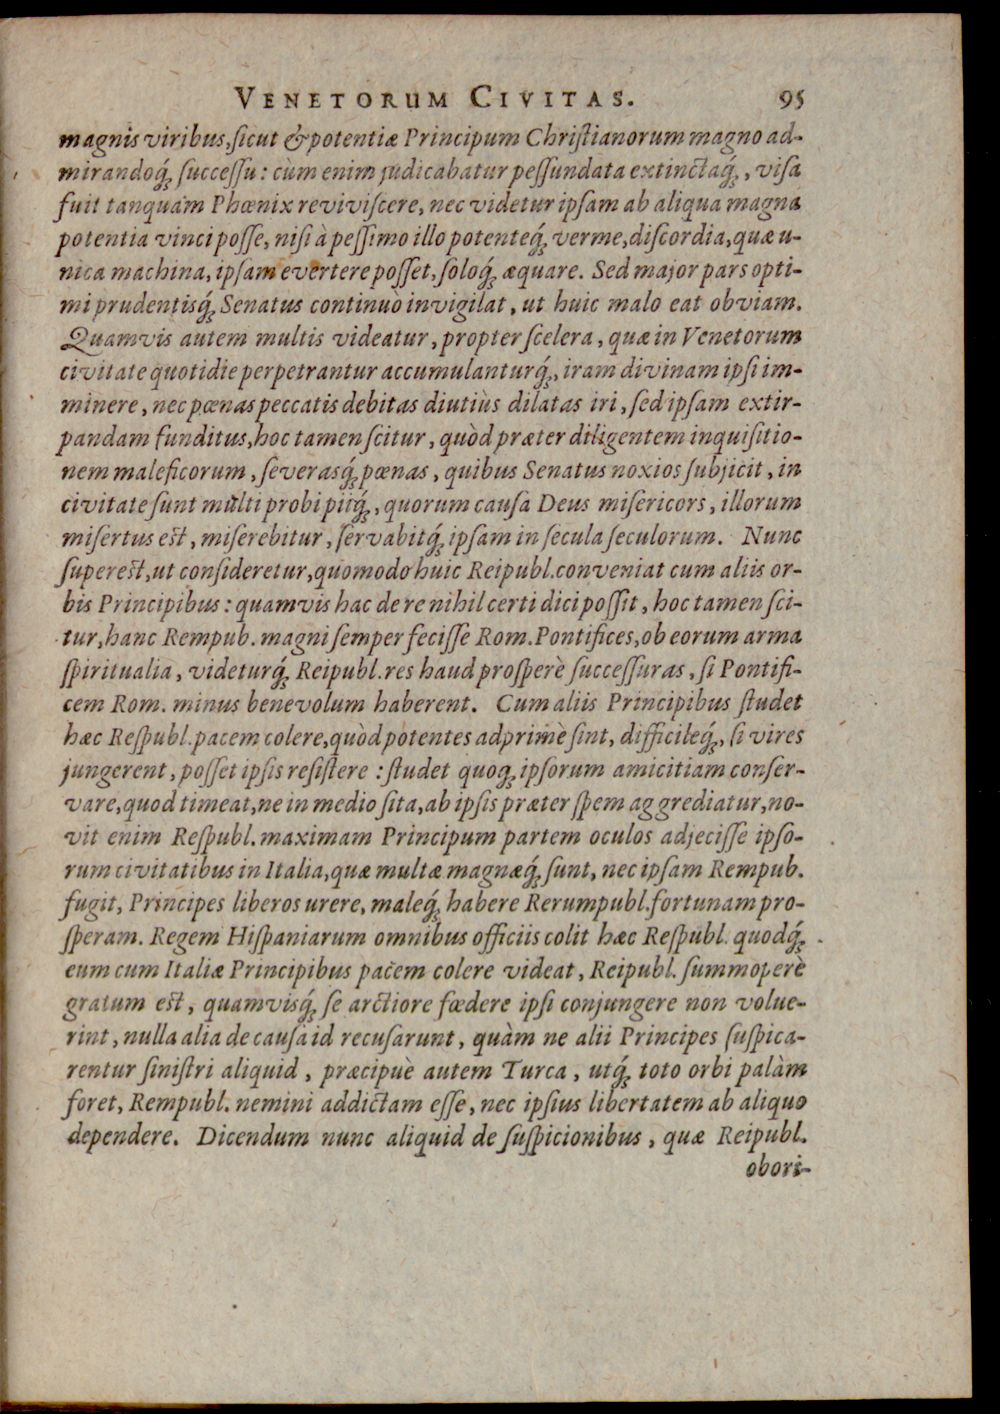 VENETORUM CIVITAS. 95
magnis viribus, ſicut & potentiæ Principum Chriſtianorum magno ad-
mirandoq́ʒ ſucceſſu: cùm enim judicabatur peſſundata extinctaq́ʒ, viſa
fuit tanquam Phœnix reviviſcere, nec videtur ipſam ab aliqua magna
potentia vinci poſſe, niſi à peſſimo illo potenteq́ʒ verme, diſcordia, quæ u-
nica machina, ipſam evertere poſſet, ſoloq́ʒ æquare. Sed major pars opti-
mi prudentisq́ʒ Senatus continuò invigilat, ut huic malo eat obviam.
Quamvis autem multis videatur, propter ſcelera, quæ in Venetorum
civitate quotidie perpetrantur accumulanturq́ʒ, iram divinam ipſi im-
minere, nec pœnas peccatis debitas diutiùs dilatas iri, ſed ipſam extir-
pandam funditus, hoc tamen ſcitur, quòd præter diligentem inquiſitio-
nem maleficorum, ſeverasq́ʒ pœnas, quibus Senatus noxios ſubjicit, in
civitate ſunt multi probi piiq́ʒ, quorum cauſa Deus miſericors, illorum
miſertus eſt, miſerebitur, ſervabitq́ʒ ipſam in ſecula ſeculorum. Nunc
ſupereſt, ut conſideretur, quomodo huic Reipubl. conveniat cum aliis or-
bis Principibus: quamvis hac de re nihil certi dici poſſit, hoc tamen ſci-
tur, hanc Rempub. magni ſemper feciſſe Rom. Pontifices, ob eorum arma
ſpiritualia, videturq́ʒ Reipubl. res haud proſperè ſucceſſuras, ſi Pontifi-
cem Rom. minus benevolum haberent. Cum aliis Principibus ſtudet
hæc Reſpubl. pacem colere, quòd potentes adprimè ſint, difficileq́ʒ, ſi vires
jungerent, poſſet ipſis reſiſtere: ſtudet quoqʒ ipſorum amicitiam conſer-
vare, quod timeat, ne in medio ſita, ab ipſis præter ſpem aggrediatur, no-
vit enim Reſpubl. maximam Principum partem oculos adjeciſſe ipſo-
rum civitatibus in Italia, quæ multæ magnæq́ʒ ſunt, nec ipſam Rempub.
fugit, Principes liberos urere, maleq́ʒ habere Rerumpubl. fortunam pro-
ſperam. Regem Hiſpaniarum omnibus officiis colit hæc Reſpubl. quodq́ʒ
eum cum Italiæ Principibus pacem colere videat, Reipubl. ſummoperè
gratum eſt, quamvisq́ʒ ſe arctiore fœdere ipſi conjungere non volue-
rint, nulla alia de cauſa id recuſarunt, quàm ne alii Principes ſuſpica-
rentur ſiniſtri aliquid, præcipuè autem Turca, utq́ʒ toto orbi palàm
foret, Rempubl. nemini addictam eſſe, nec ipſius libertatem ab aliquo
dependere. Dicendum nunc aliquid de ſuſpicionibus, quæ Reipubl.
obori-